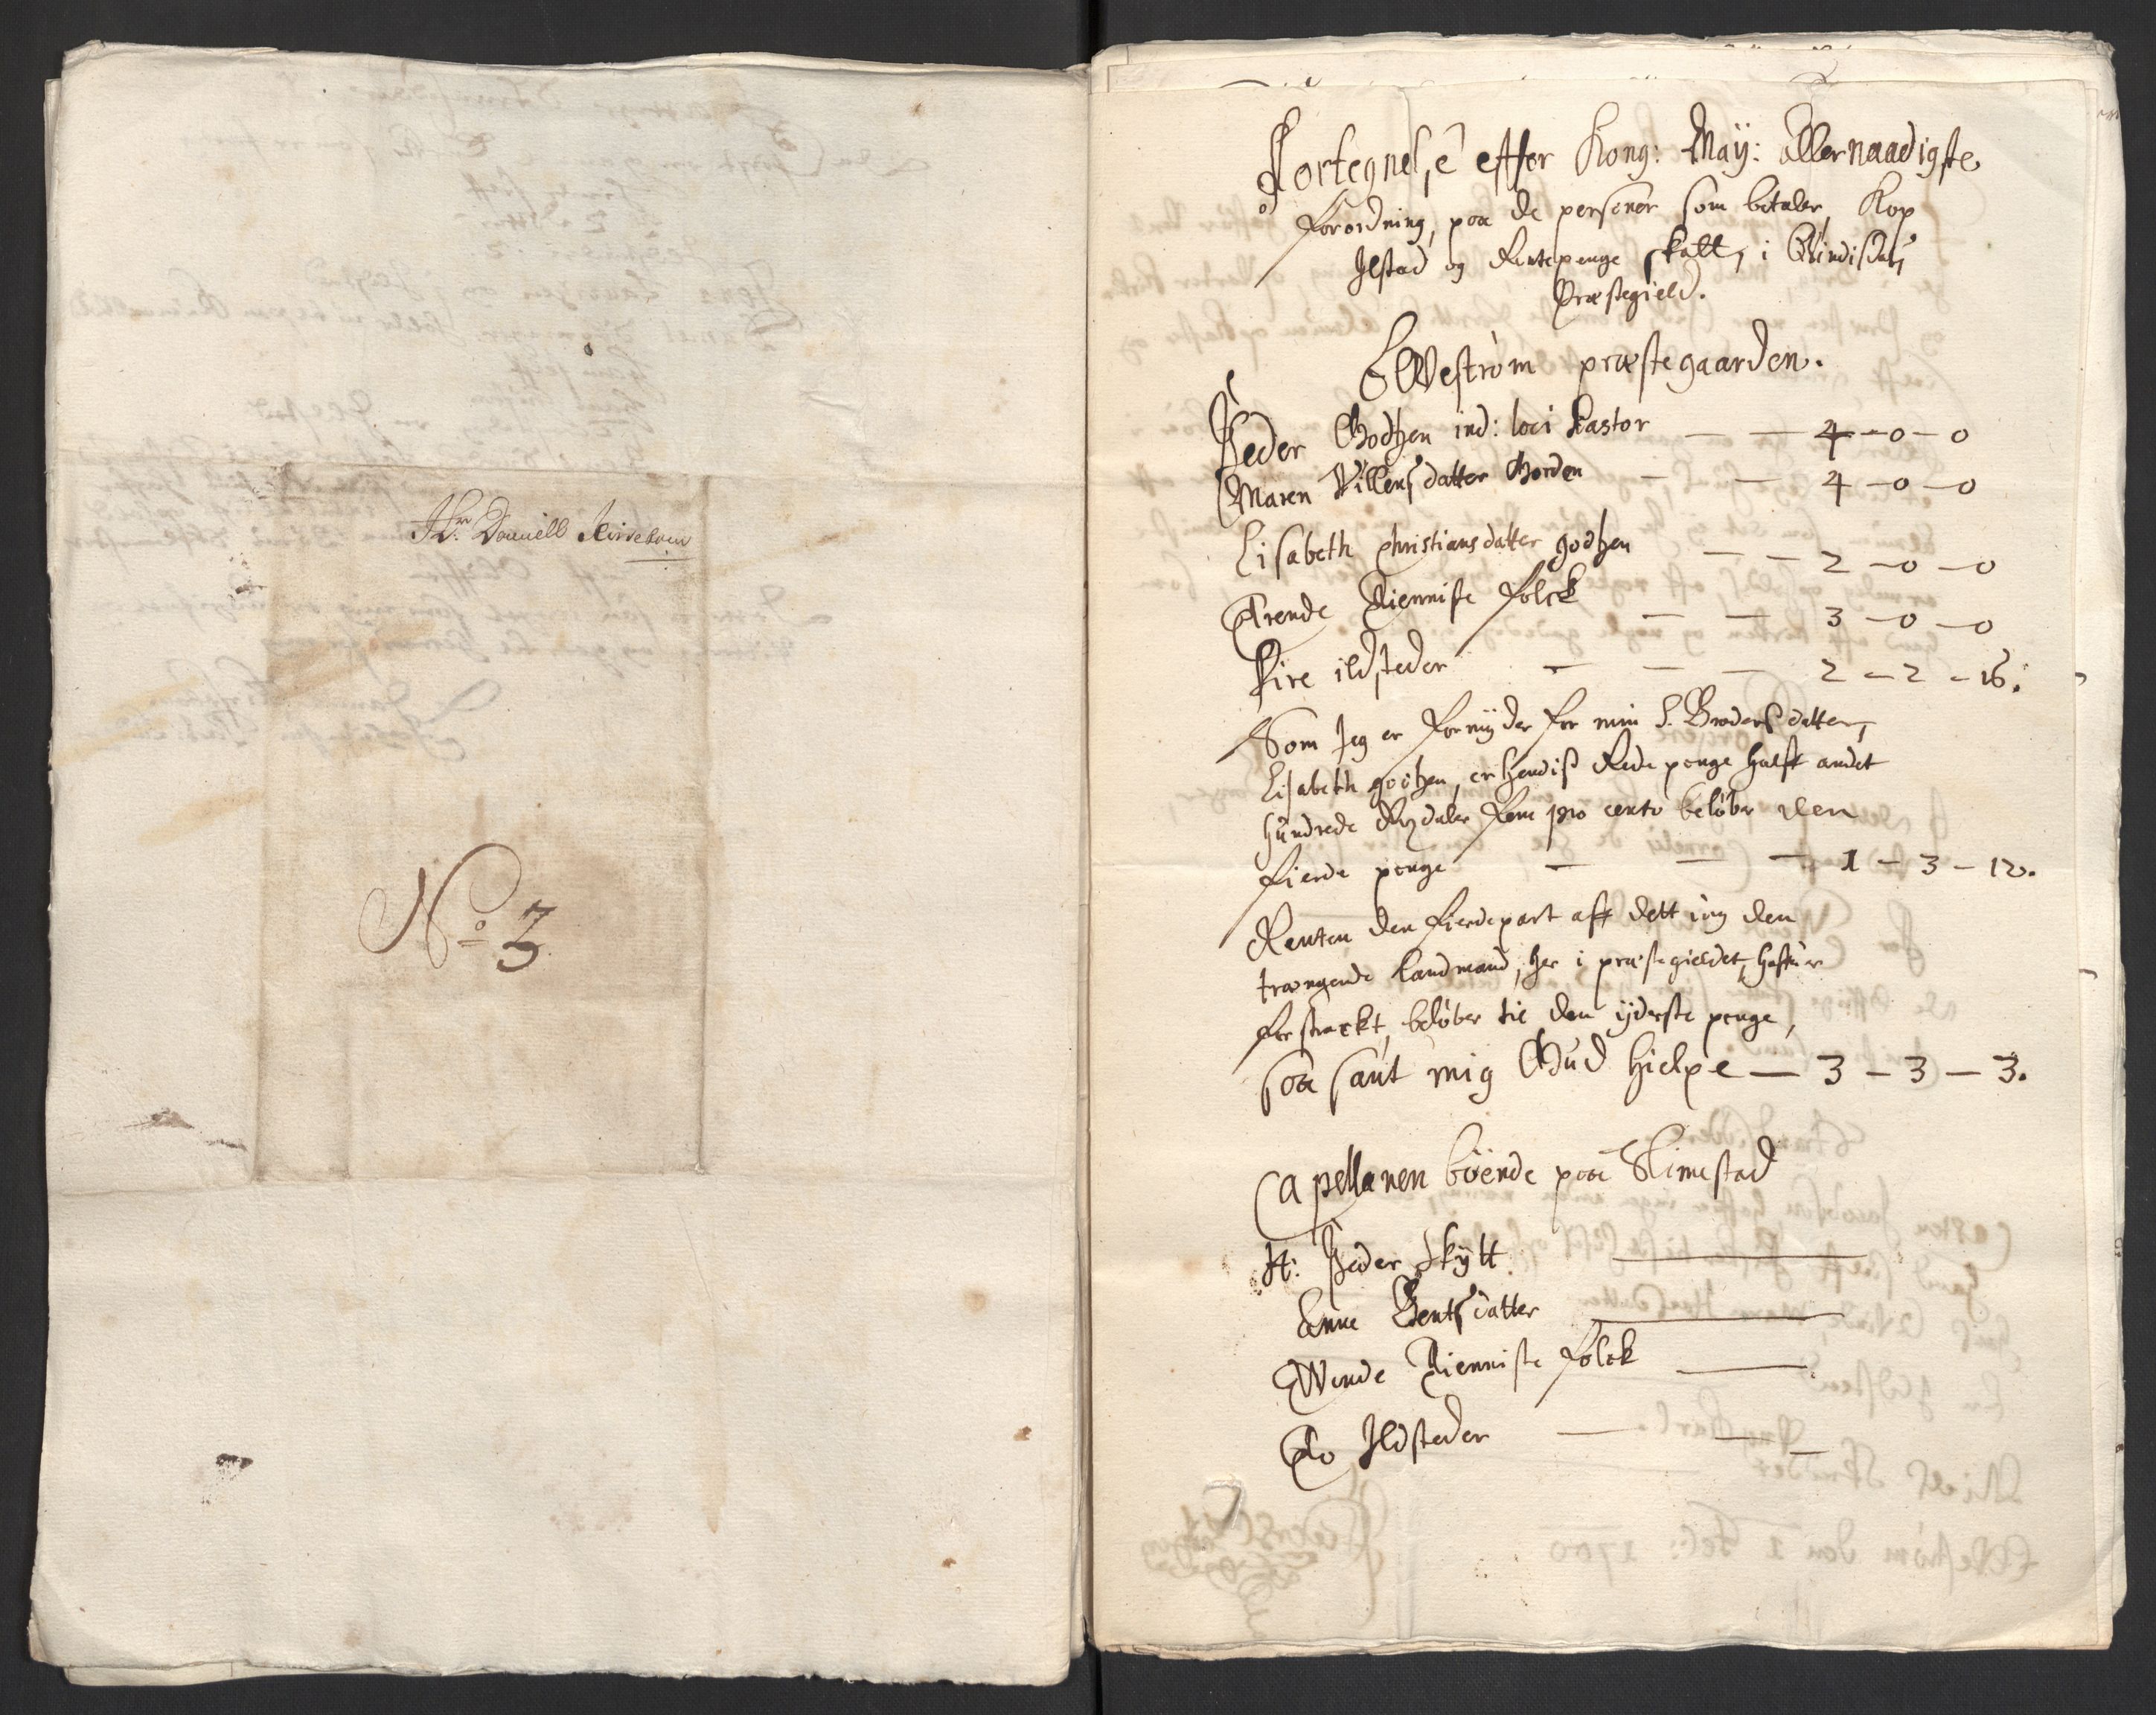 Hr. Daniell Kirsebom
No 3
Fortegnelse effter Kong: Maÿ: allernaadigste
Forordning, paa de personer som betaler, Kop
Ilsted og Rentepenge skatt, i Qvindisdals
Præstegield.
Elvestrøm præstegaarden.
Peder Godtzen ind: loci Pastor — — 4 - 0 - 0
Maren Villumsdatter Gorden — — 4 - 0 - 0
Lisabeth Christiansdatter Godtzen — — 2 - 0 - 0
Trende Tienniste folck — — 3 - 0 - 0
Fire ildsteder — — — 2 - 2 - 16.
Som Jeg er Formÿder for min S. Broders datter,
Lisabeth godtzen, er hendis Rede penge halft andet
hundrede Rixdaler Fem pro cento beløber den
fierde penge — — — 1 - 3 - 12.
Renten den Fierdepart aff dett ieg den
trængende landmand, her i præstegieldet, hafuer
forstrackt, beløber til den ÿderste penge,
saa sant mig Gud hielpe — 3 - 3 - 3.
Capellanen boende paa Slimestad
H: Peder Skÿtt —
Anne Bentsdatter —
Tvende Tienniste folck —
To Ildsteder — — —